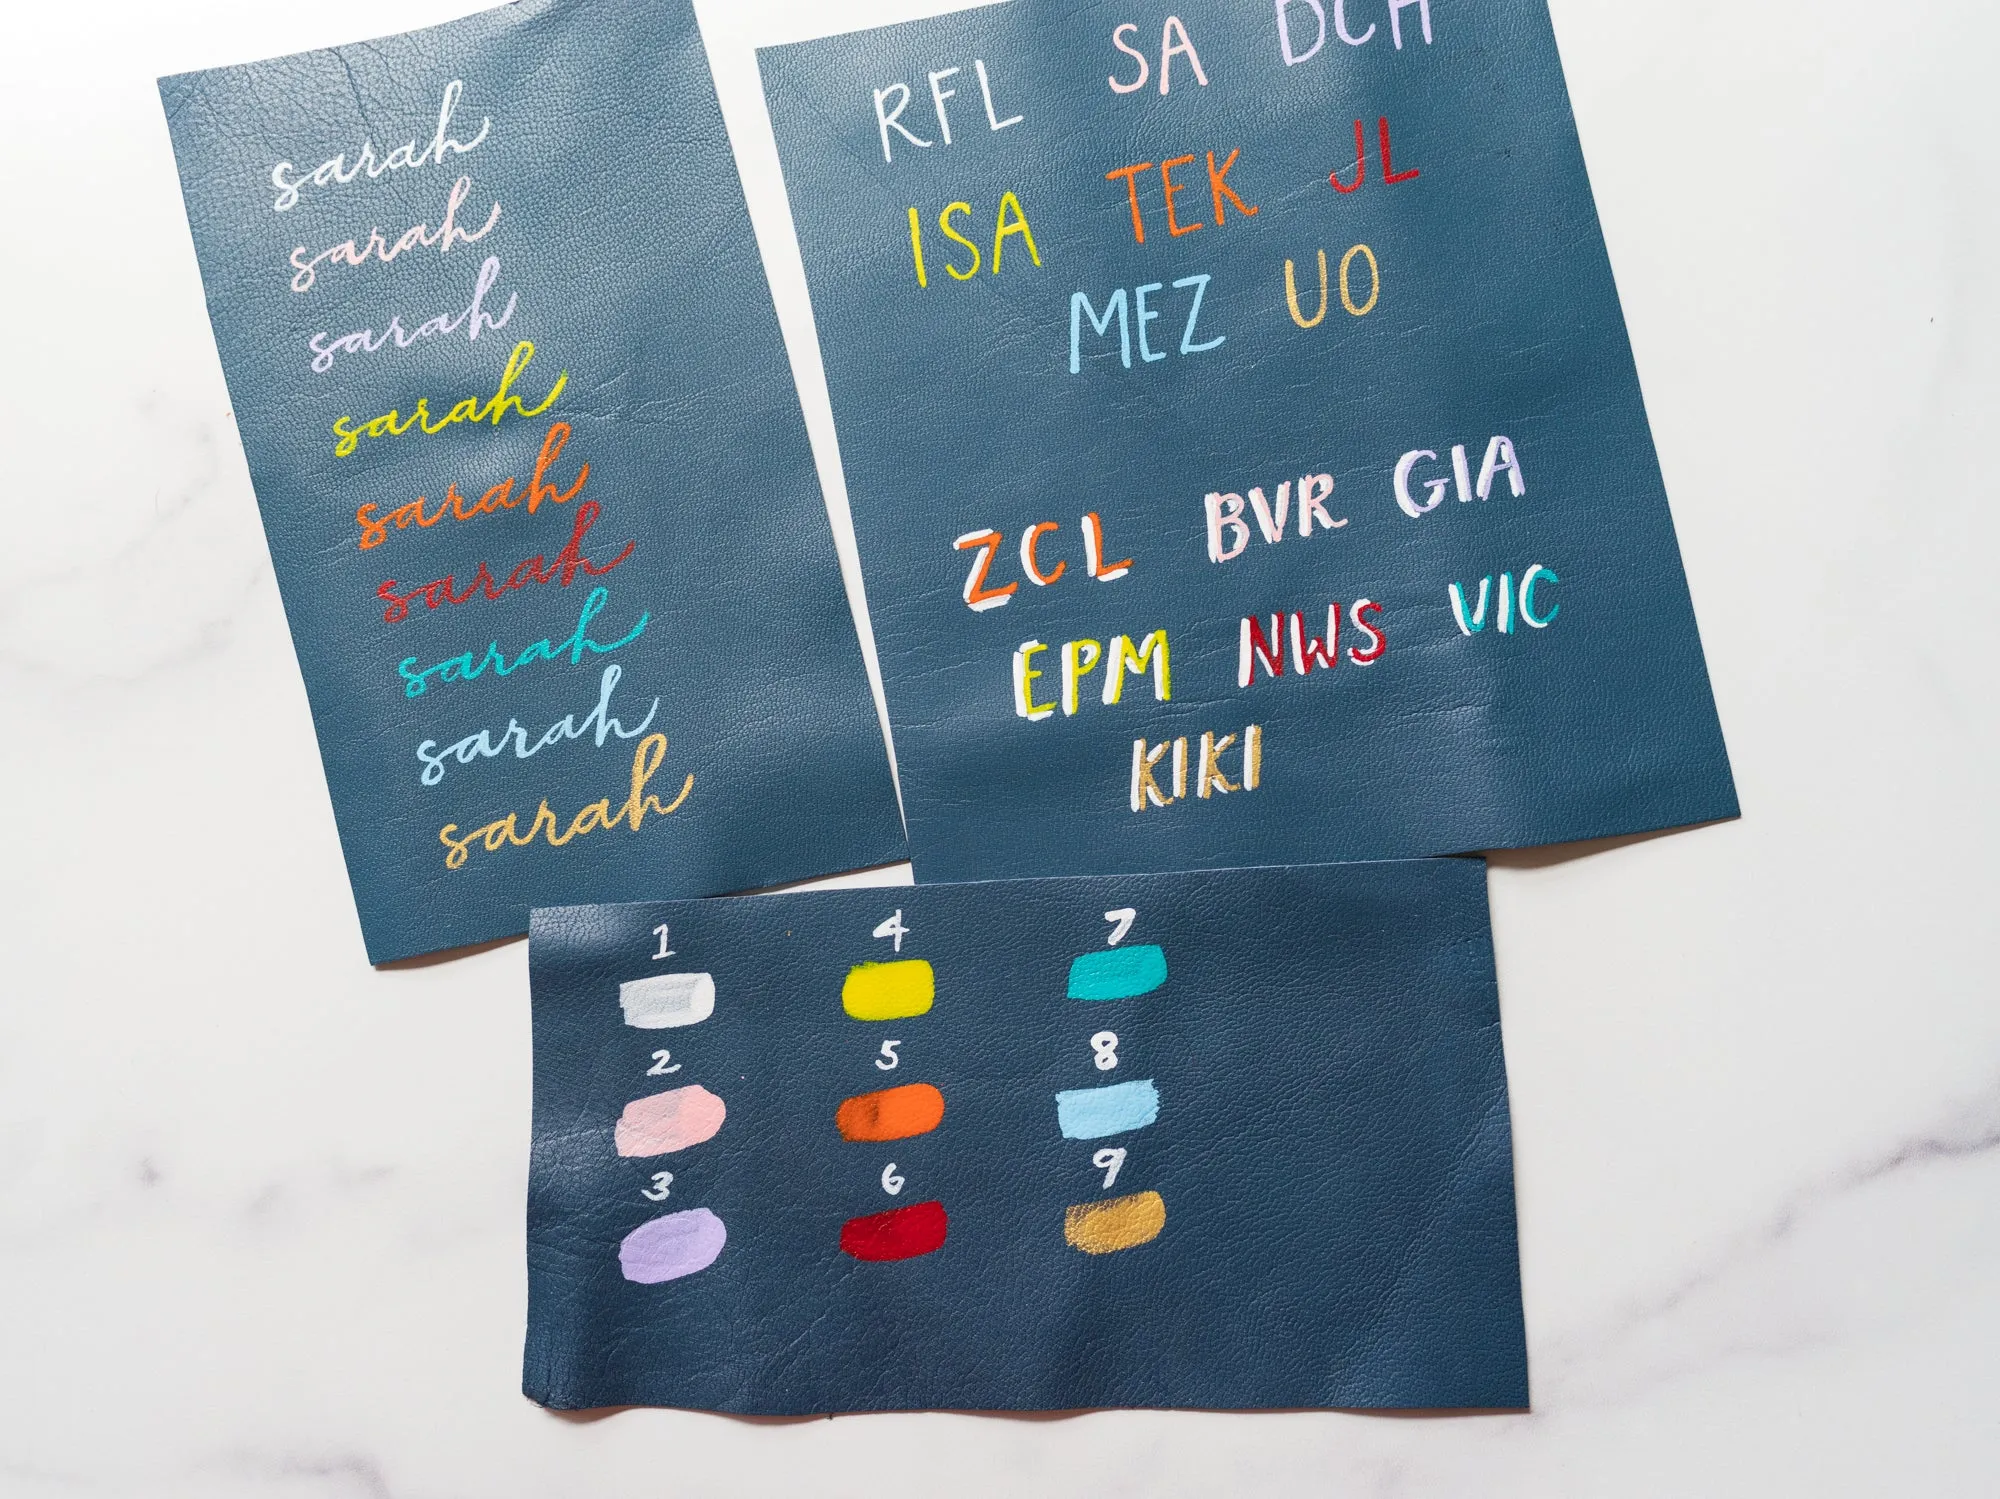 sarah
sarah
sarah
sarah
sarah
sarah
sarah
sarah
sarah
RFL SA DCH
ISA TEK JL
MEZ UO
ZCL BVR GIA
EPM NWS VIC
KIKI
1 4 7
2 5 8
3 6 9